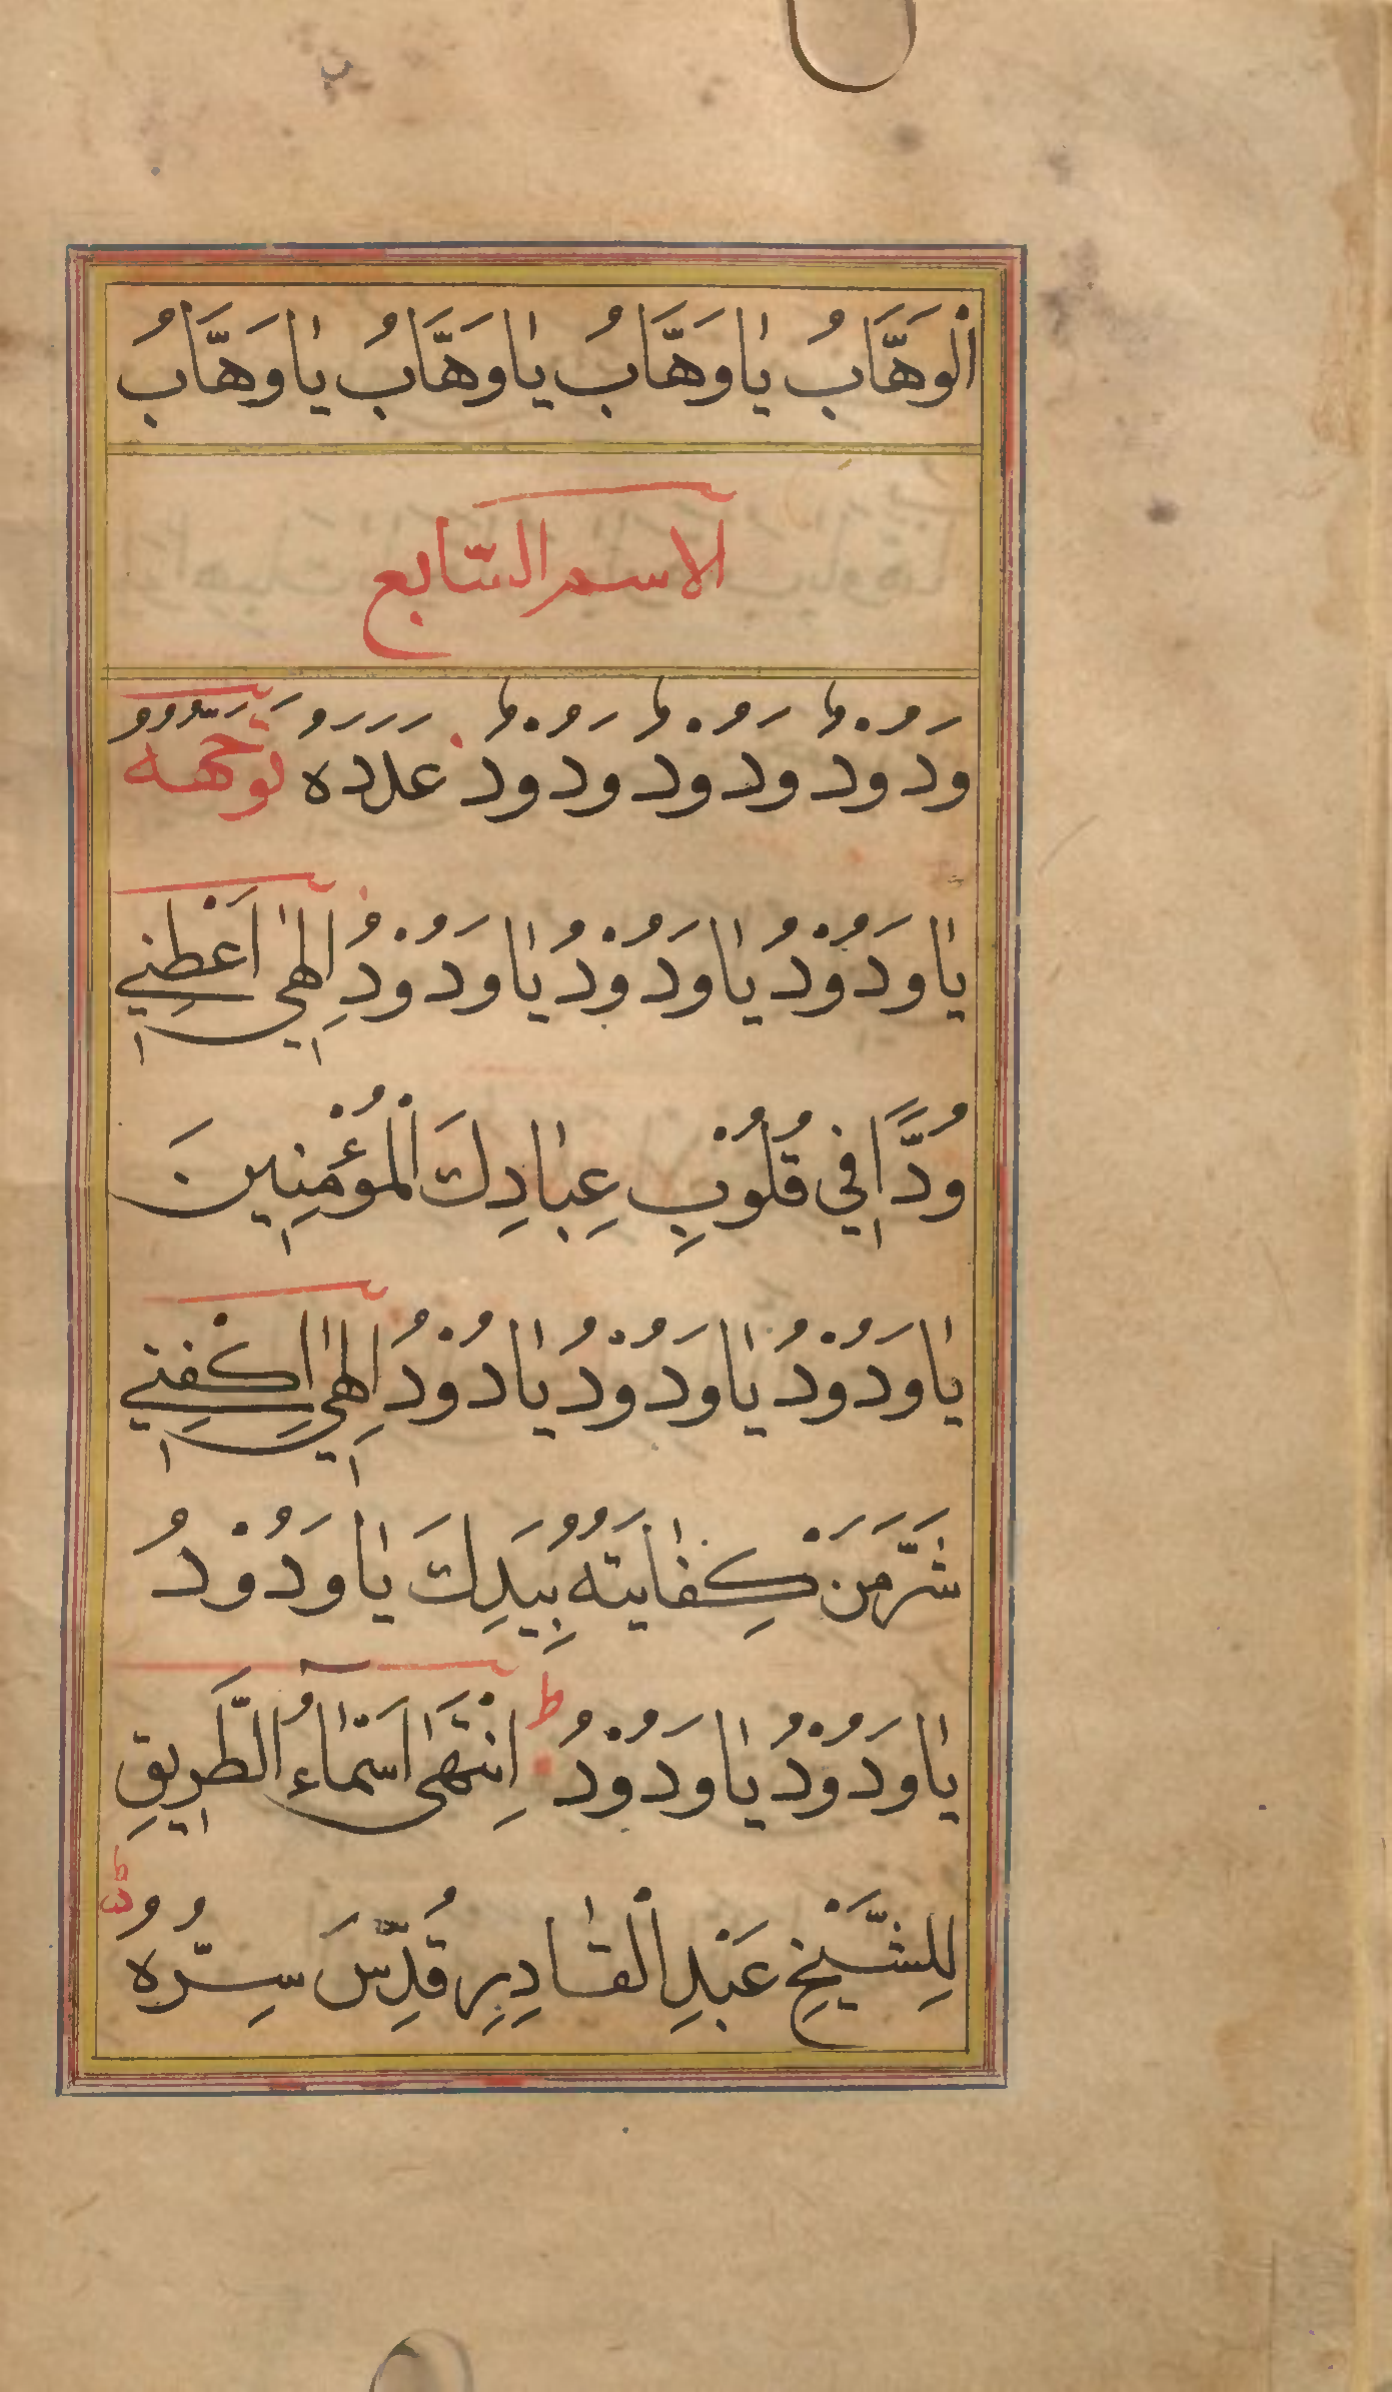 اْلوَهَّابُ يٰاوَهَّابُ يٰاوَهَّابُ يٰاوَهَّابُ
الاسم السّابع
وَدُوْدُ وَدُوْدُ وَدُوْدُ عَدَدَهُ تَوَجُّهُهُ
يٰاوَدُوْدُ يٰاوَدُوْدُ يٰاوَدُوْدُ اِلٰهِي اَعْطِنِي
وُدًّا فِي قُلُوْبِ عِبٰادِكَ اْلمُؤْمِنِينَ
يٰاوَدُوْدُ يٰاوَدُوْدُ يٰادُوْدُ اِلٰهِي اِكْفِنِي
شَرَّ مَنْ كِفٰايَتُهُ بِيَدِكَ يٰاوَدُوْدُ
يٰاوَدُوْدُ يٰاوَدُوْدُ اِنْتَهَىٰ اَسْمٰاءُ الطَّرِيقِ
لِلشَّيْخِ عَبْدِ اْلقٰادِرِ قُدِّسَ سِرُّهُ